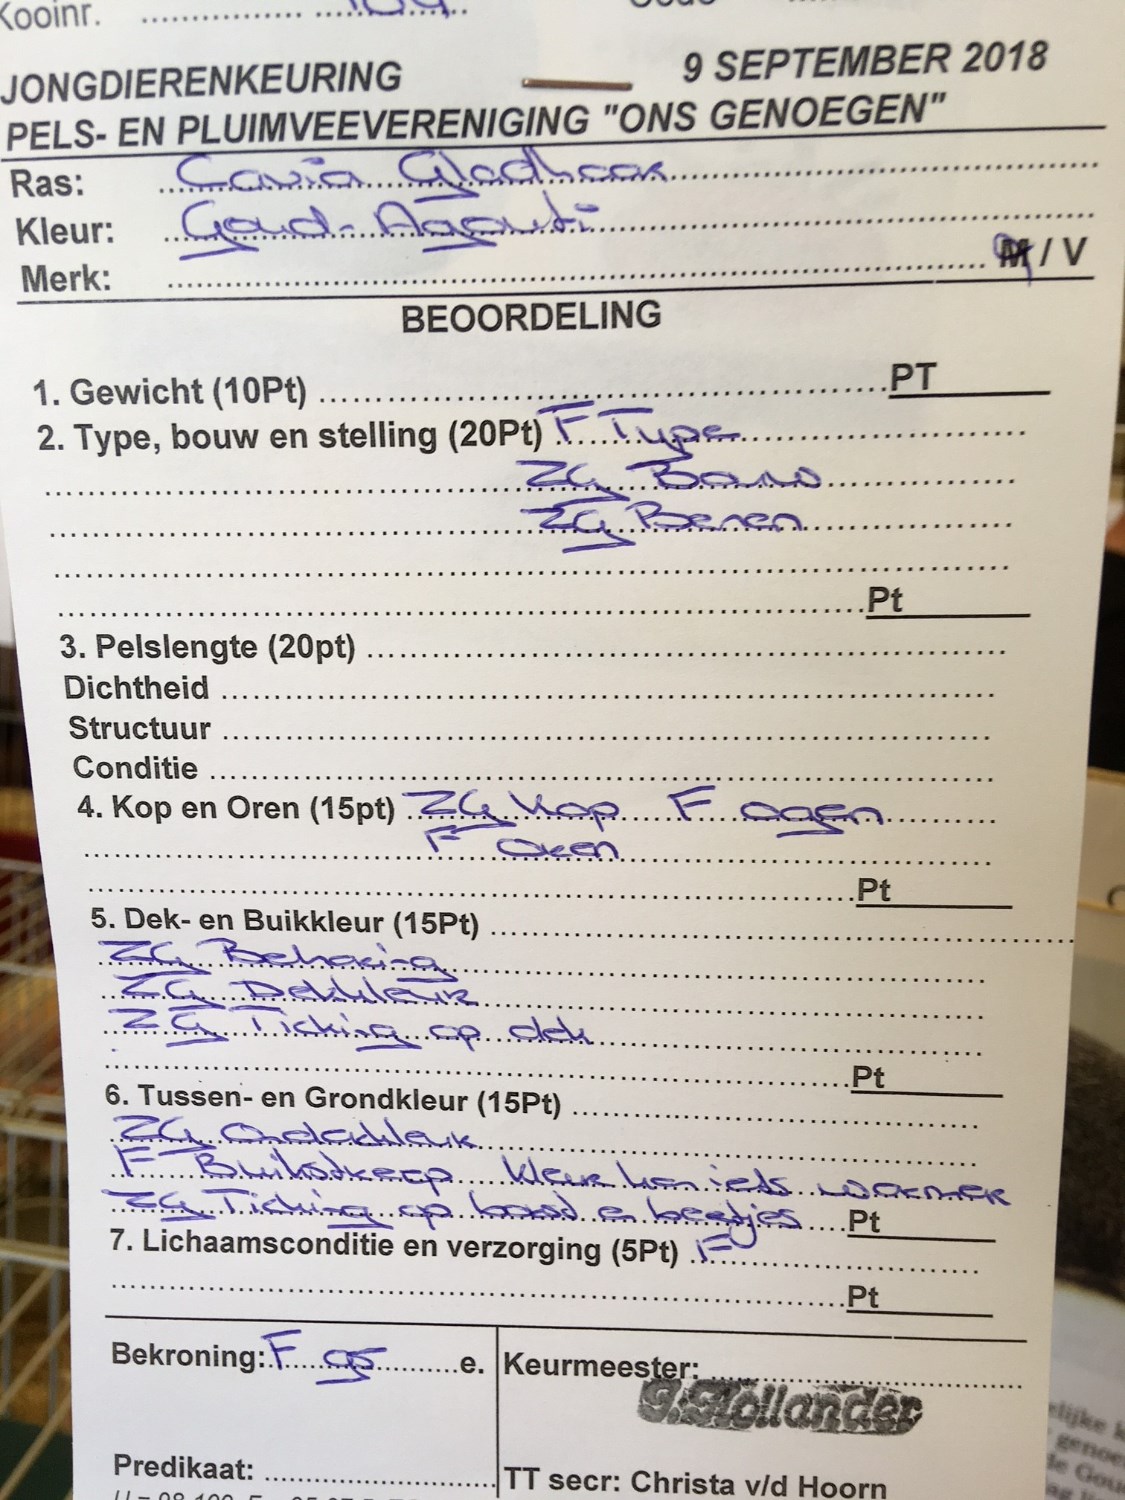 Kooinr. ....................
JONGDIERENKEURING 9 SEPTEMBER 2018
PELS- EN PLUIMVEEVERENIGING "ONS GENOEGEN"
Ras: Cavia Gladhaar
Kleur: Goud-Agouti
Merk: M / V
BEOORDELING
1. Gewicht (10Pt) PT
2. Type, bouw en stelling (20Pt) F Type
ZG Bouw
ZG Benen
Pt
3. Pelslengte (20pt)
Dichtheid
Structuur
Conditie
4. Kop en Oren (15pt) ZG Kop F ogen
F Oren
Pt
5. Dek- en Buikkleur (15Pt)
ZG Beharing
ZG Dekkleur
ZG Ticking op dek
Pt
6. Tussen- en Grondkleur (15Pt)
ZG Ondekleur
F Buikstreep kleur kon iets warmer
ZG Ticking op borst en beentjes Pt
7. Lichaamsconditie en verzorging (5Pt) F
Pt
Bekroning: F 95 e. Keurmeester:
G. Hollander
Predikaat:
TT secr: Christa v/d Hoorn